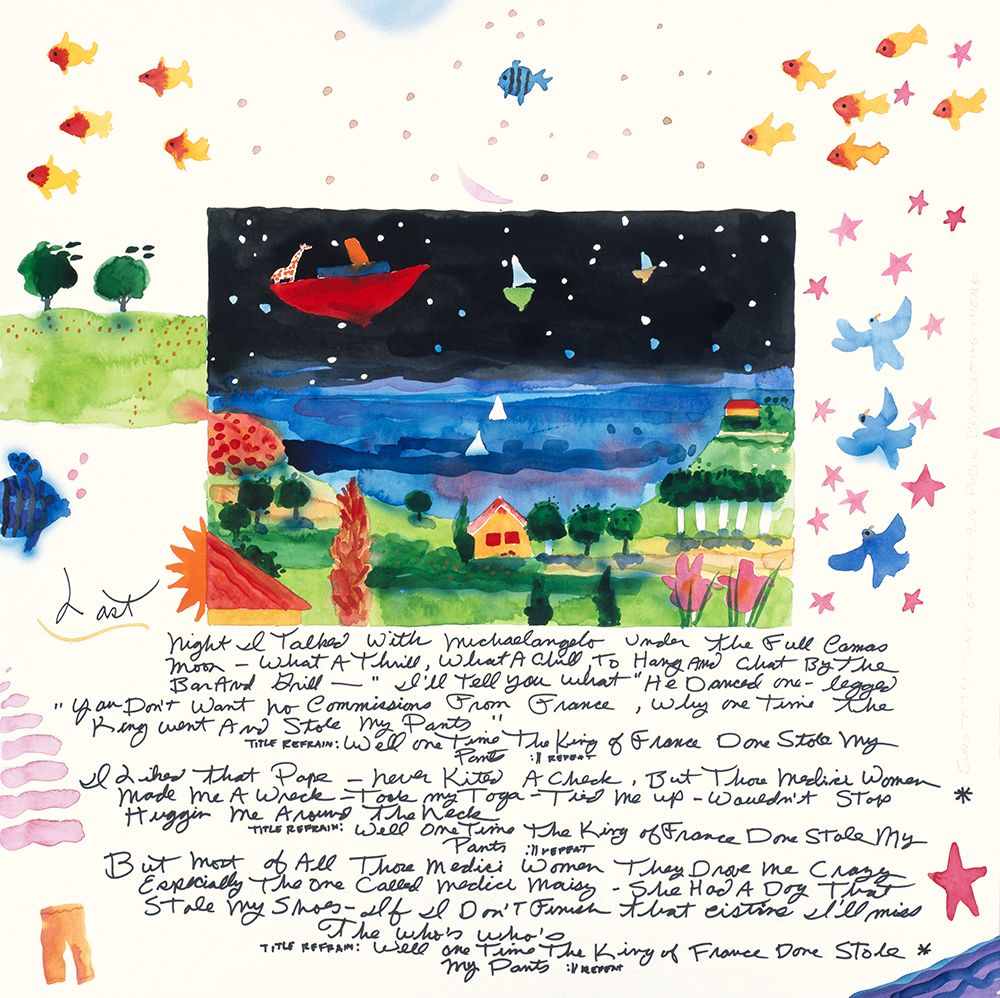 Last
Night I Talked With Michaelangelo Under The Full Camas
Moon – What A Thrill, What A Chill, To Hang And Chat By The
Bar And Grill — " I'll Tell You What " He Danced one-legged
" You Don't Want No Commissions From France, Why One Time The
King Went And Stole My Pants "
TITLE REFRAIN: Well One Time The King of France Done Stole My
Pants :|| REPEAT
I Liked That Pope – Never Kited A Check, But Those Medici Women
Made Me A Wreck – Took my Toga – Tied Me up – Wouldn't Stop
Huggin Me Around The Neck
TITLE REFRAIN: Well One Time The King of France Done Stole My
Pants :|| REPEAT
But Most of All Those Medici Women They Drove Me Crazy
Especially The One Called Medici Maisy – She Had A Dog That
Stole My Shoes – If I Don't Finish That Cistine I'll miss
The Who's Who's
TITLE REFRAIN: Well One Time The King of France Done Stole *
My Pants :|| REPEAT
*
SUNG TO THE TUNE OF THE 1934